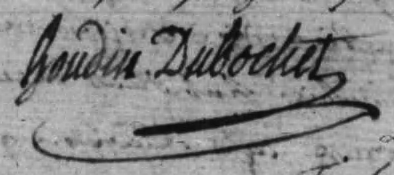 Goudin Dubochet